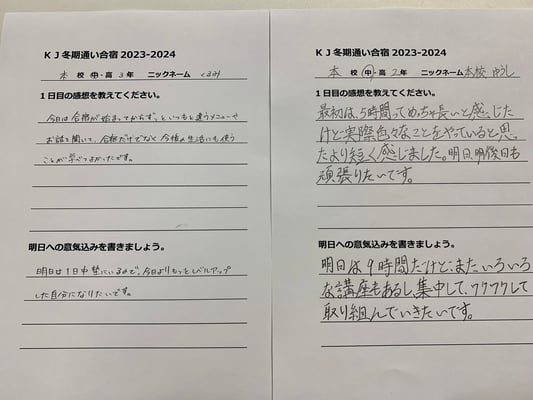 KJ冬期通い合宿 2023-2024
本 校 中・高 3年 ニックネーム くるみ
1日目の感想を教えてください。
今日は合宿が始まってからずっといつもと違うメニューや
お話を聞いて、合宿だけでなく今後の生活にも使う
ことが学べてよかったです。
明日への意気込みを書きましょう。
明日は1日中塾にいるので、今日よりもっとレベルアップ
した自分になりたいです。
KJ冬期通い合宿 2023-2024
本 校 中・高 2年 ニックネーム 本校 ゆうし
1日目の感想を教えてください。
最初は、5時間ってめっちゃ長いと感じた
けど実際色々なことをやっていると思っ
たより短く感じました。明日、明後日も
頑張りたいです。
明日への意気込みを書きましょう。
明日は9時間だけど、またいろいろ
な講座もあるし、集中して、ワクワクして
取り組んでいきたいです。